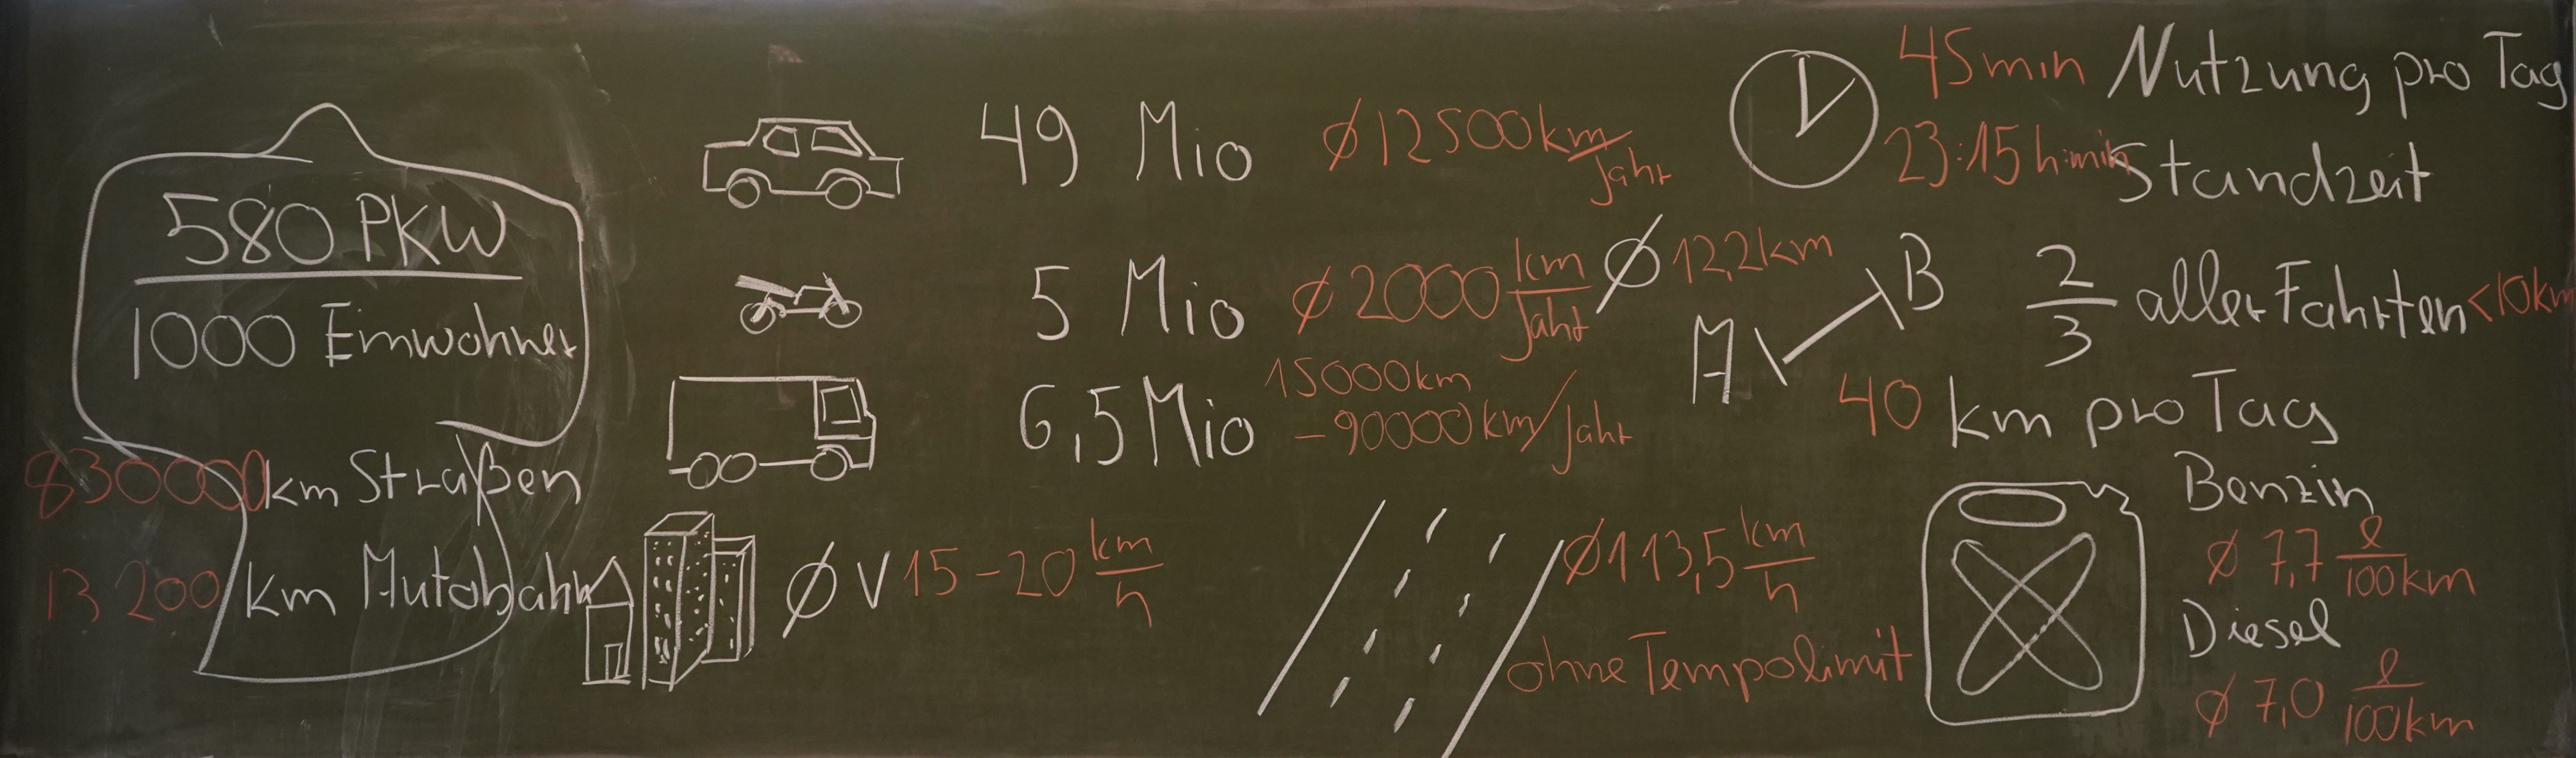 580 PKW
1000 Einwohner
830000 km Straßen
13 200 km Autobahn
49 Mio ø 12500 km/Jahr
5 Mio ø 2000 km/Jahr
6,5 Mio 15000 km
- 90000 km/Jahr
ø V 15-20 km/h
45 min Nutzung pro Tag
23:15 h:min Standzeit
ø 12,2 km
A B
2/3 aller Fahrten <10km
40 km pro Tag
ø 113,5 km/h
ohne Tempolimit
Benzin
ø 7,7 l/100 km
Diesel
ø 7,0 l/100 km